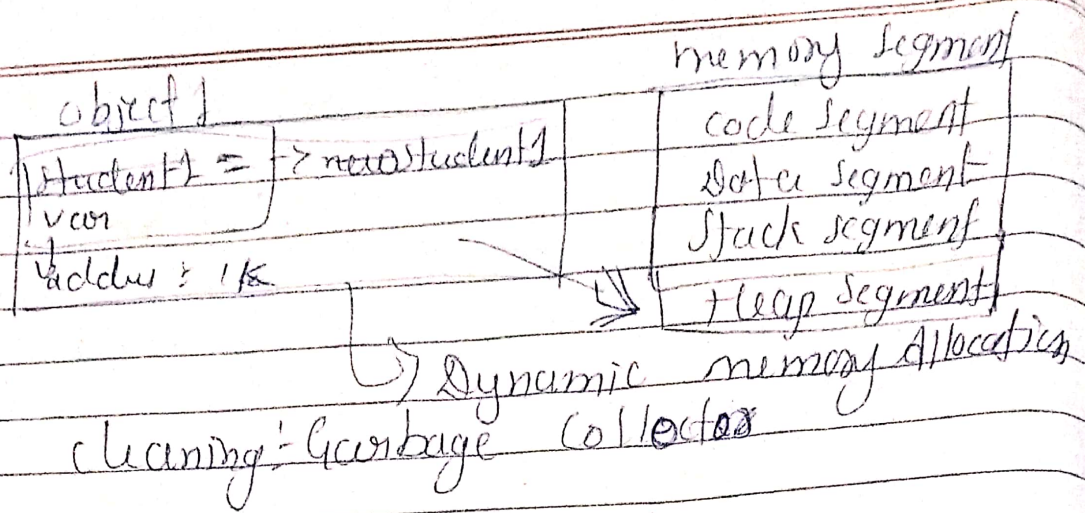 memory segment
object 1
student1 = -> new student1
var
addr : 1k
code segment
Data segment
Stack segment
Heap segment
Dynamic memory Allocation
cleaning :- Garbage Collector